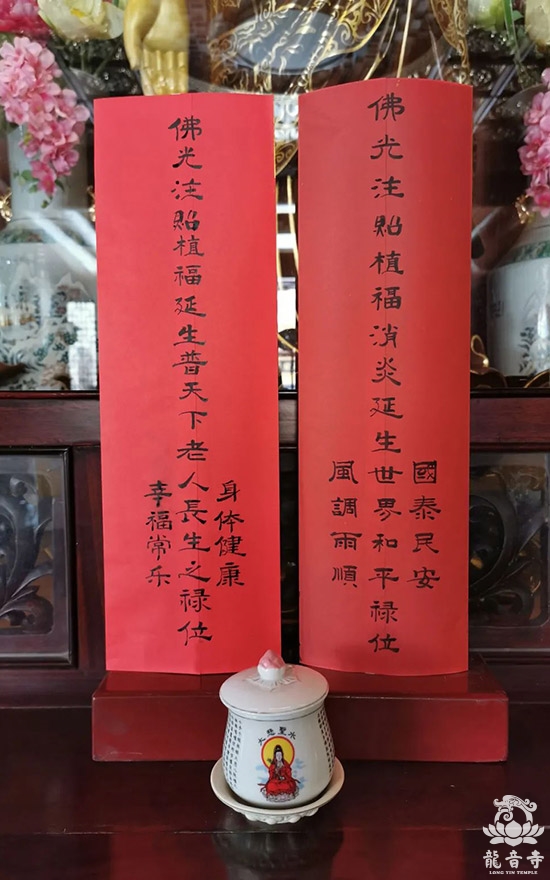 佛光注貽植福消炎延生世界和平禄位
國泰民安
風調雨順
佛光注貽植福延生普天下老人長生之禄位
身体健康
幸福常乐
大悲聖水
龍音寺
LONG YIN TEMPLE